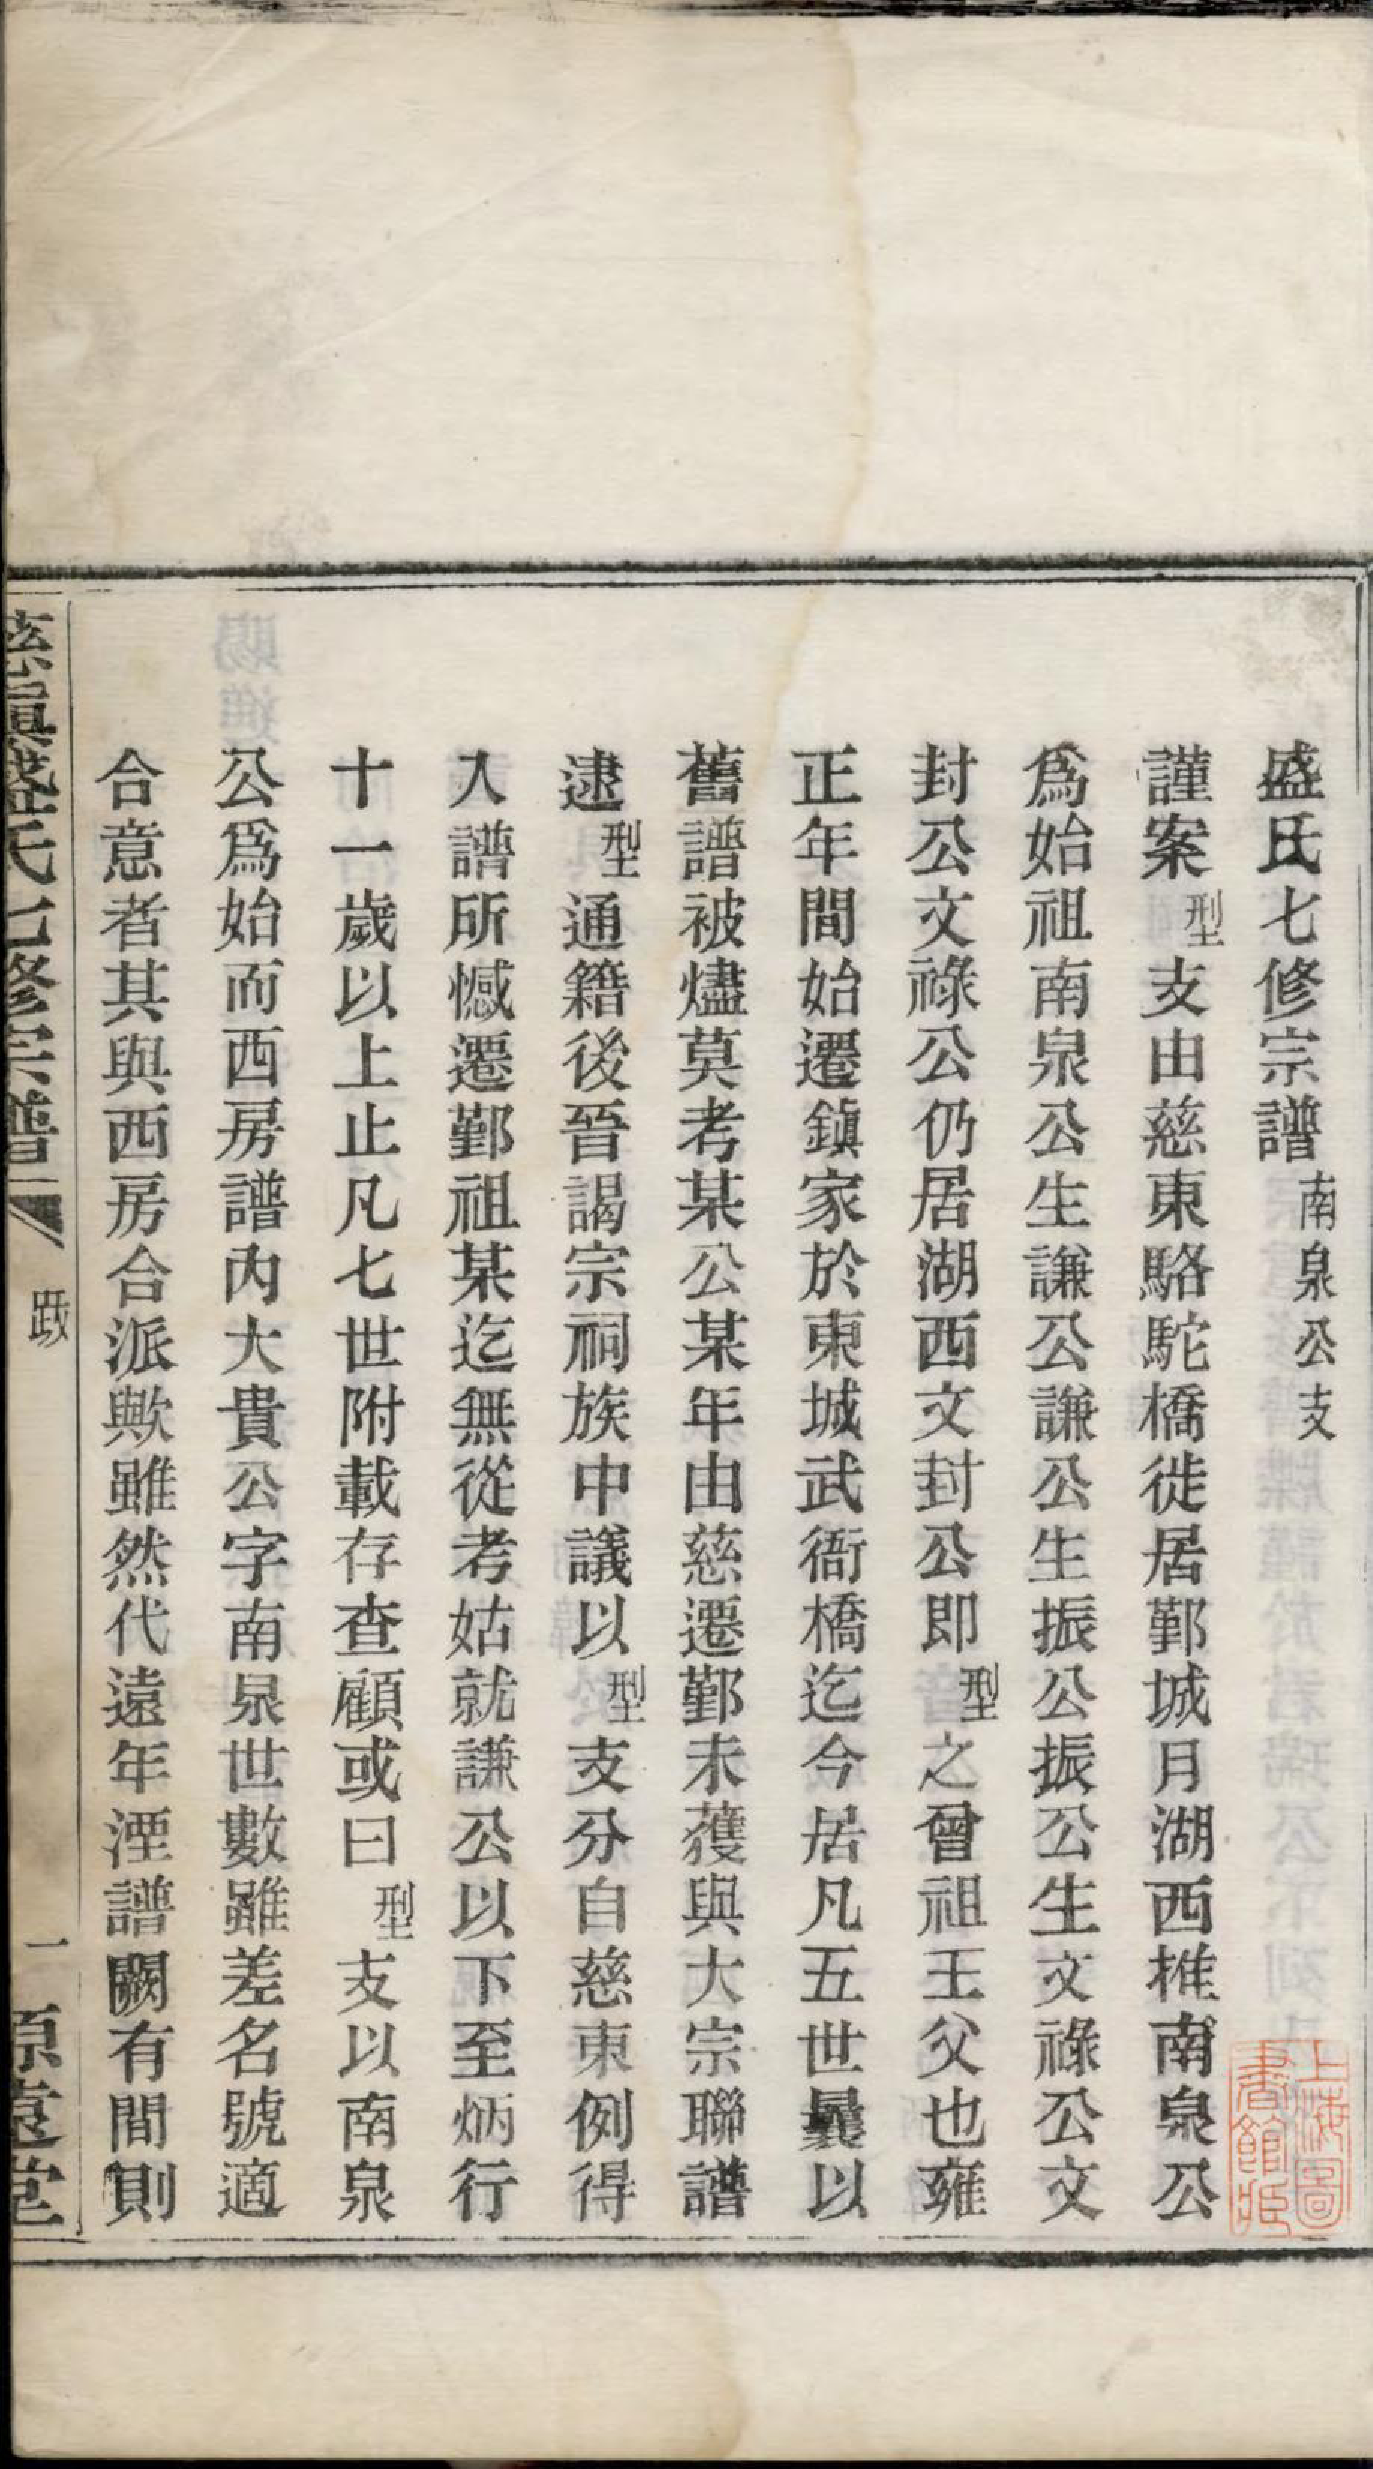 盛氏七修宗譜南泉公支
謹案型支由慈東駱駝橋徙居鄞城月湖西推南泉公
爲始祖南泉公生謙公謙公生振公振公生文祿公文
封公文祿公仍居湖西文封公即型之曾祖王父也雍
正年間始遷鎮家於東城武衙橋迄今居凡五世曩以
舊譜被燼莫考某公某年由慈遷鄞未獲與大宗聯譜
逮型通籍後晉謁宗祠族中議以型支分自慈東例得
入譜所憾遷鄞祖某迄無從考姑就謙公以下至炳行
十一歲以上止凡七世附載存查顧或曰型支以南泉
公爲始而西房譜內大貴公字南泉世數雖差名號適
合意者其與西房合派歟雖然代遠年湮譜闕有間則
慈鎭盛氏七修宗譜
跋
一
原遠堂
上海圖書館藏